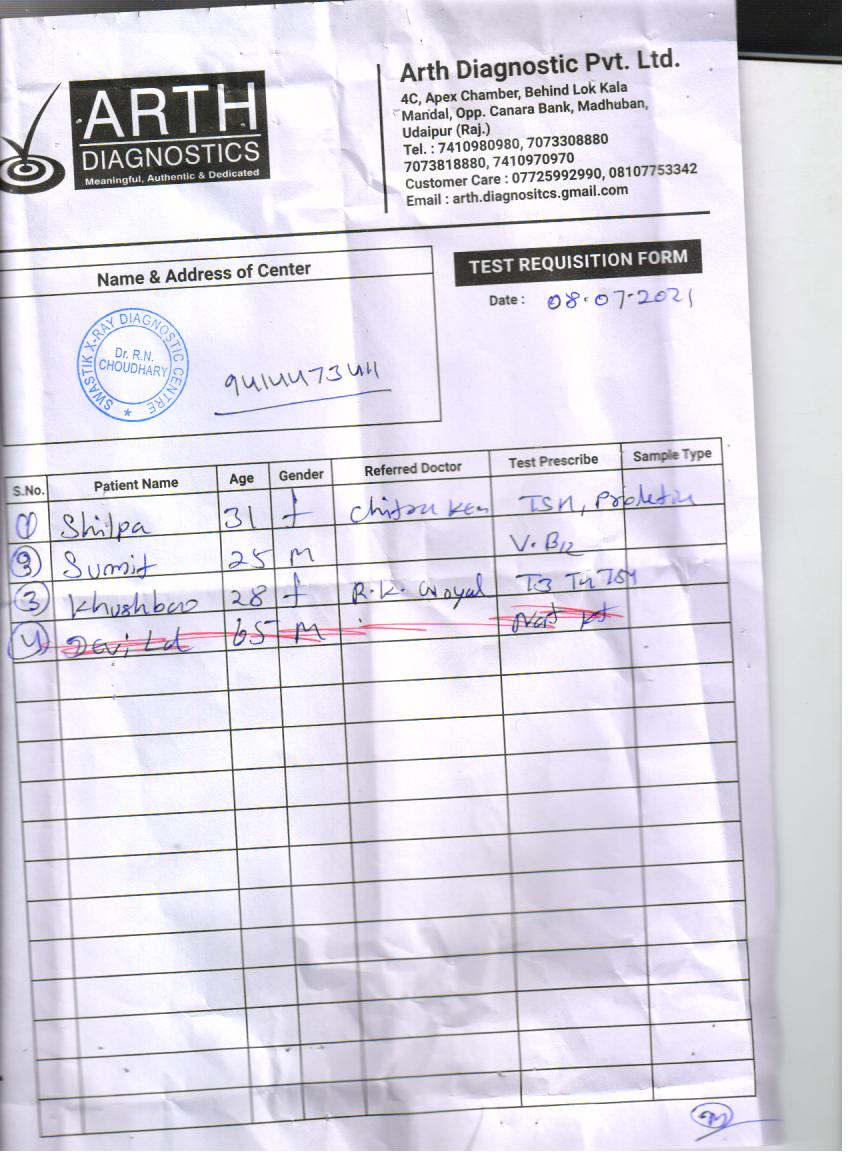 ARTH
DIAGNOSTICS
Meaningful, Authentic & Dedicated
Arth Diagnostic Pvt. Ltd.
4C, Apex Chamber, Behind Lok Kala
Mandal, Opp. Canara Bank, Madhuban,
Udaipur (Raj.)
Tel. : 7410980980, 7073308880
7073818880, 7410970970
Customer Care : 07725992990, 08107753342
Email : arth.diagnositcs.gmail.com
Name & Address of Center
TEST REQUISITION FORM
Date : 08-07-2021
SWASTIK X-RAY DIAGNOSTIC CENTRE
Dr. R.N.
CHOUDHARY
S.No. Patient Name Age Gender Referred Doctor Test Prescribe Sample Type
1 Shilpa 31 f TSH, Prolactin
Sumit 25 M V. B12
3 Khushboo 28 f R.K. Goyal T3 T4 TSH
4 Devi Lal 65 M Na+ K+